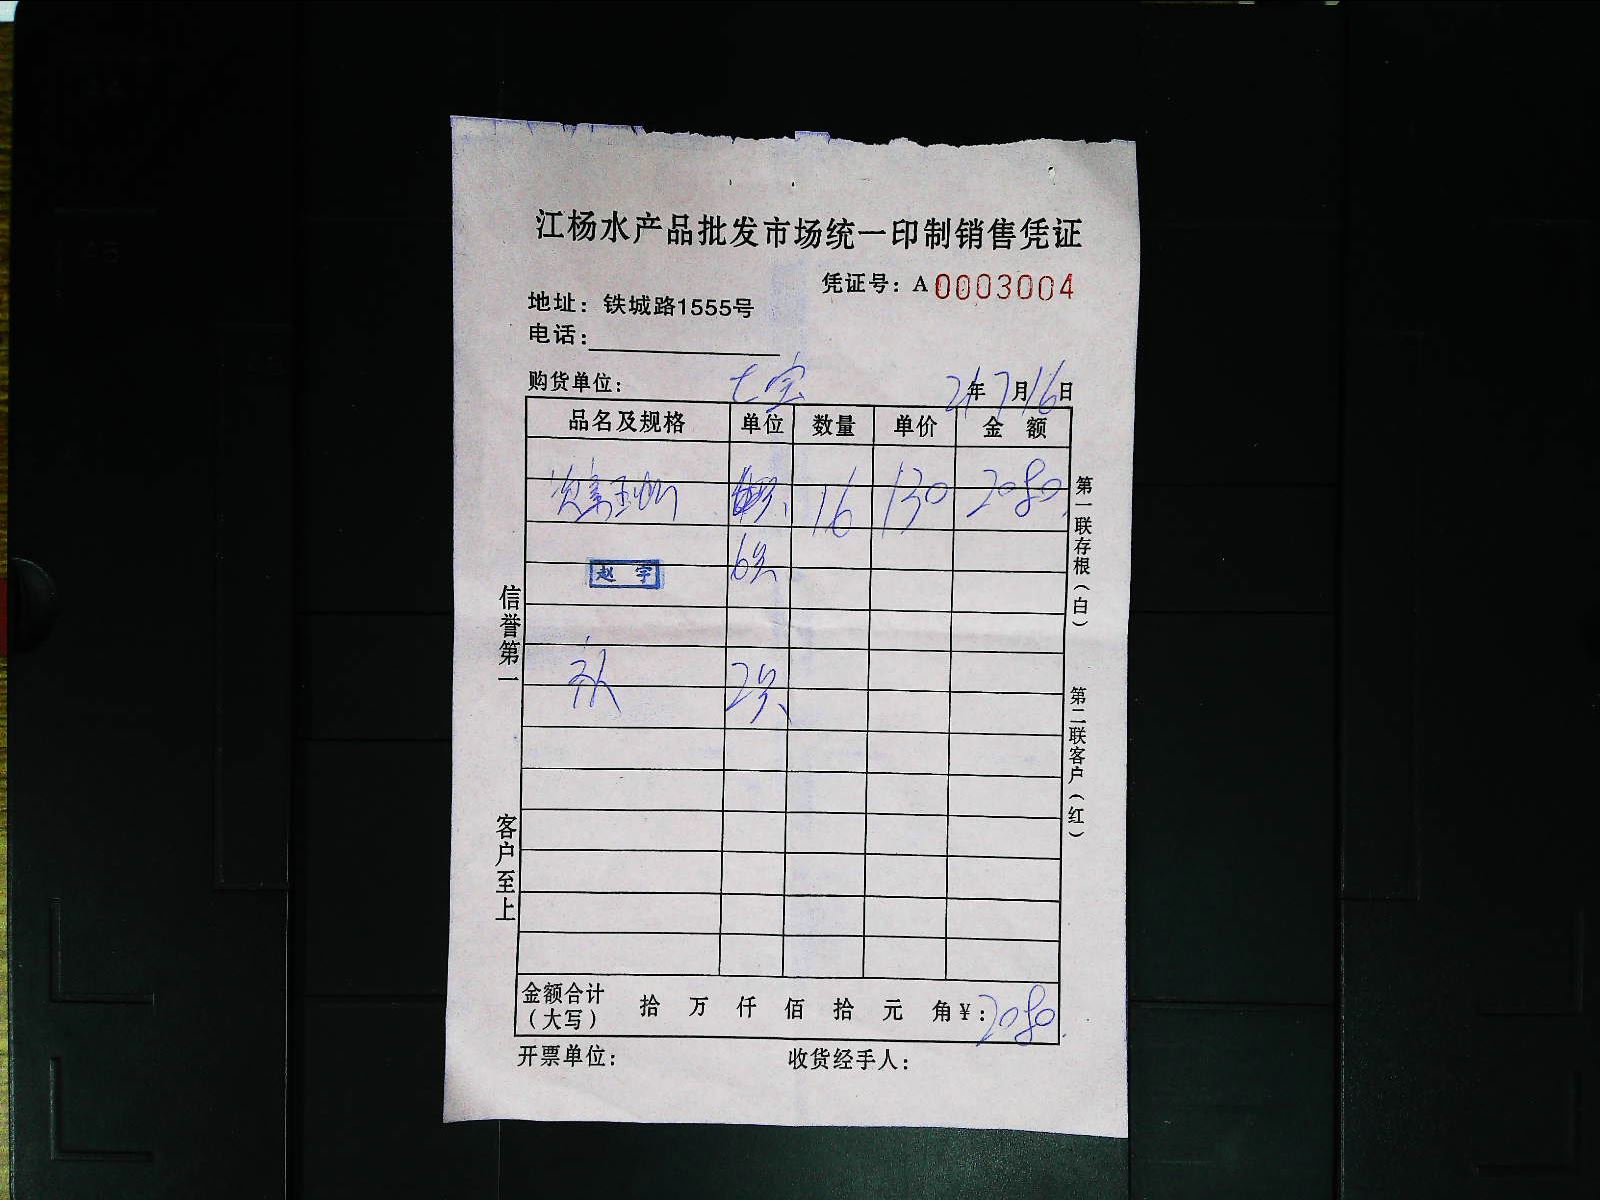 江杨水产品批发市场统一印制销售凭证
凭证号：A0003004
地址：铁城路1555号
电话：
购货单位：七宝 21年7月16日
品名及规格 单位 数量 单价 金额
16 130 2080
赵宇 6只
2只
金额合计（大写） 拾 万 仟 佰 拾 元 角 ¥：2080
开票单位： 收货经手人：
信誉第一 客户至上
第一联存根（白） 第二联客户（红）